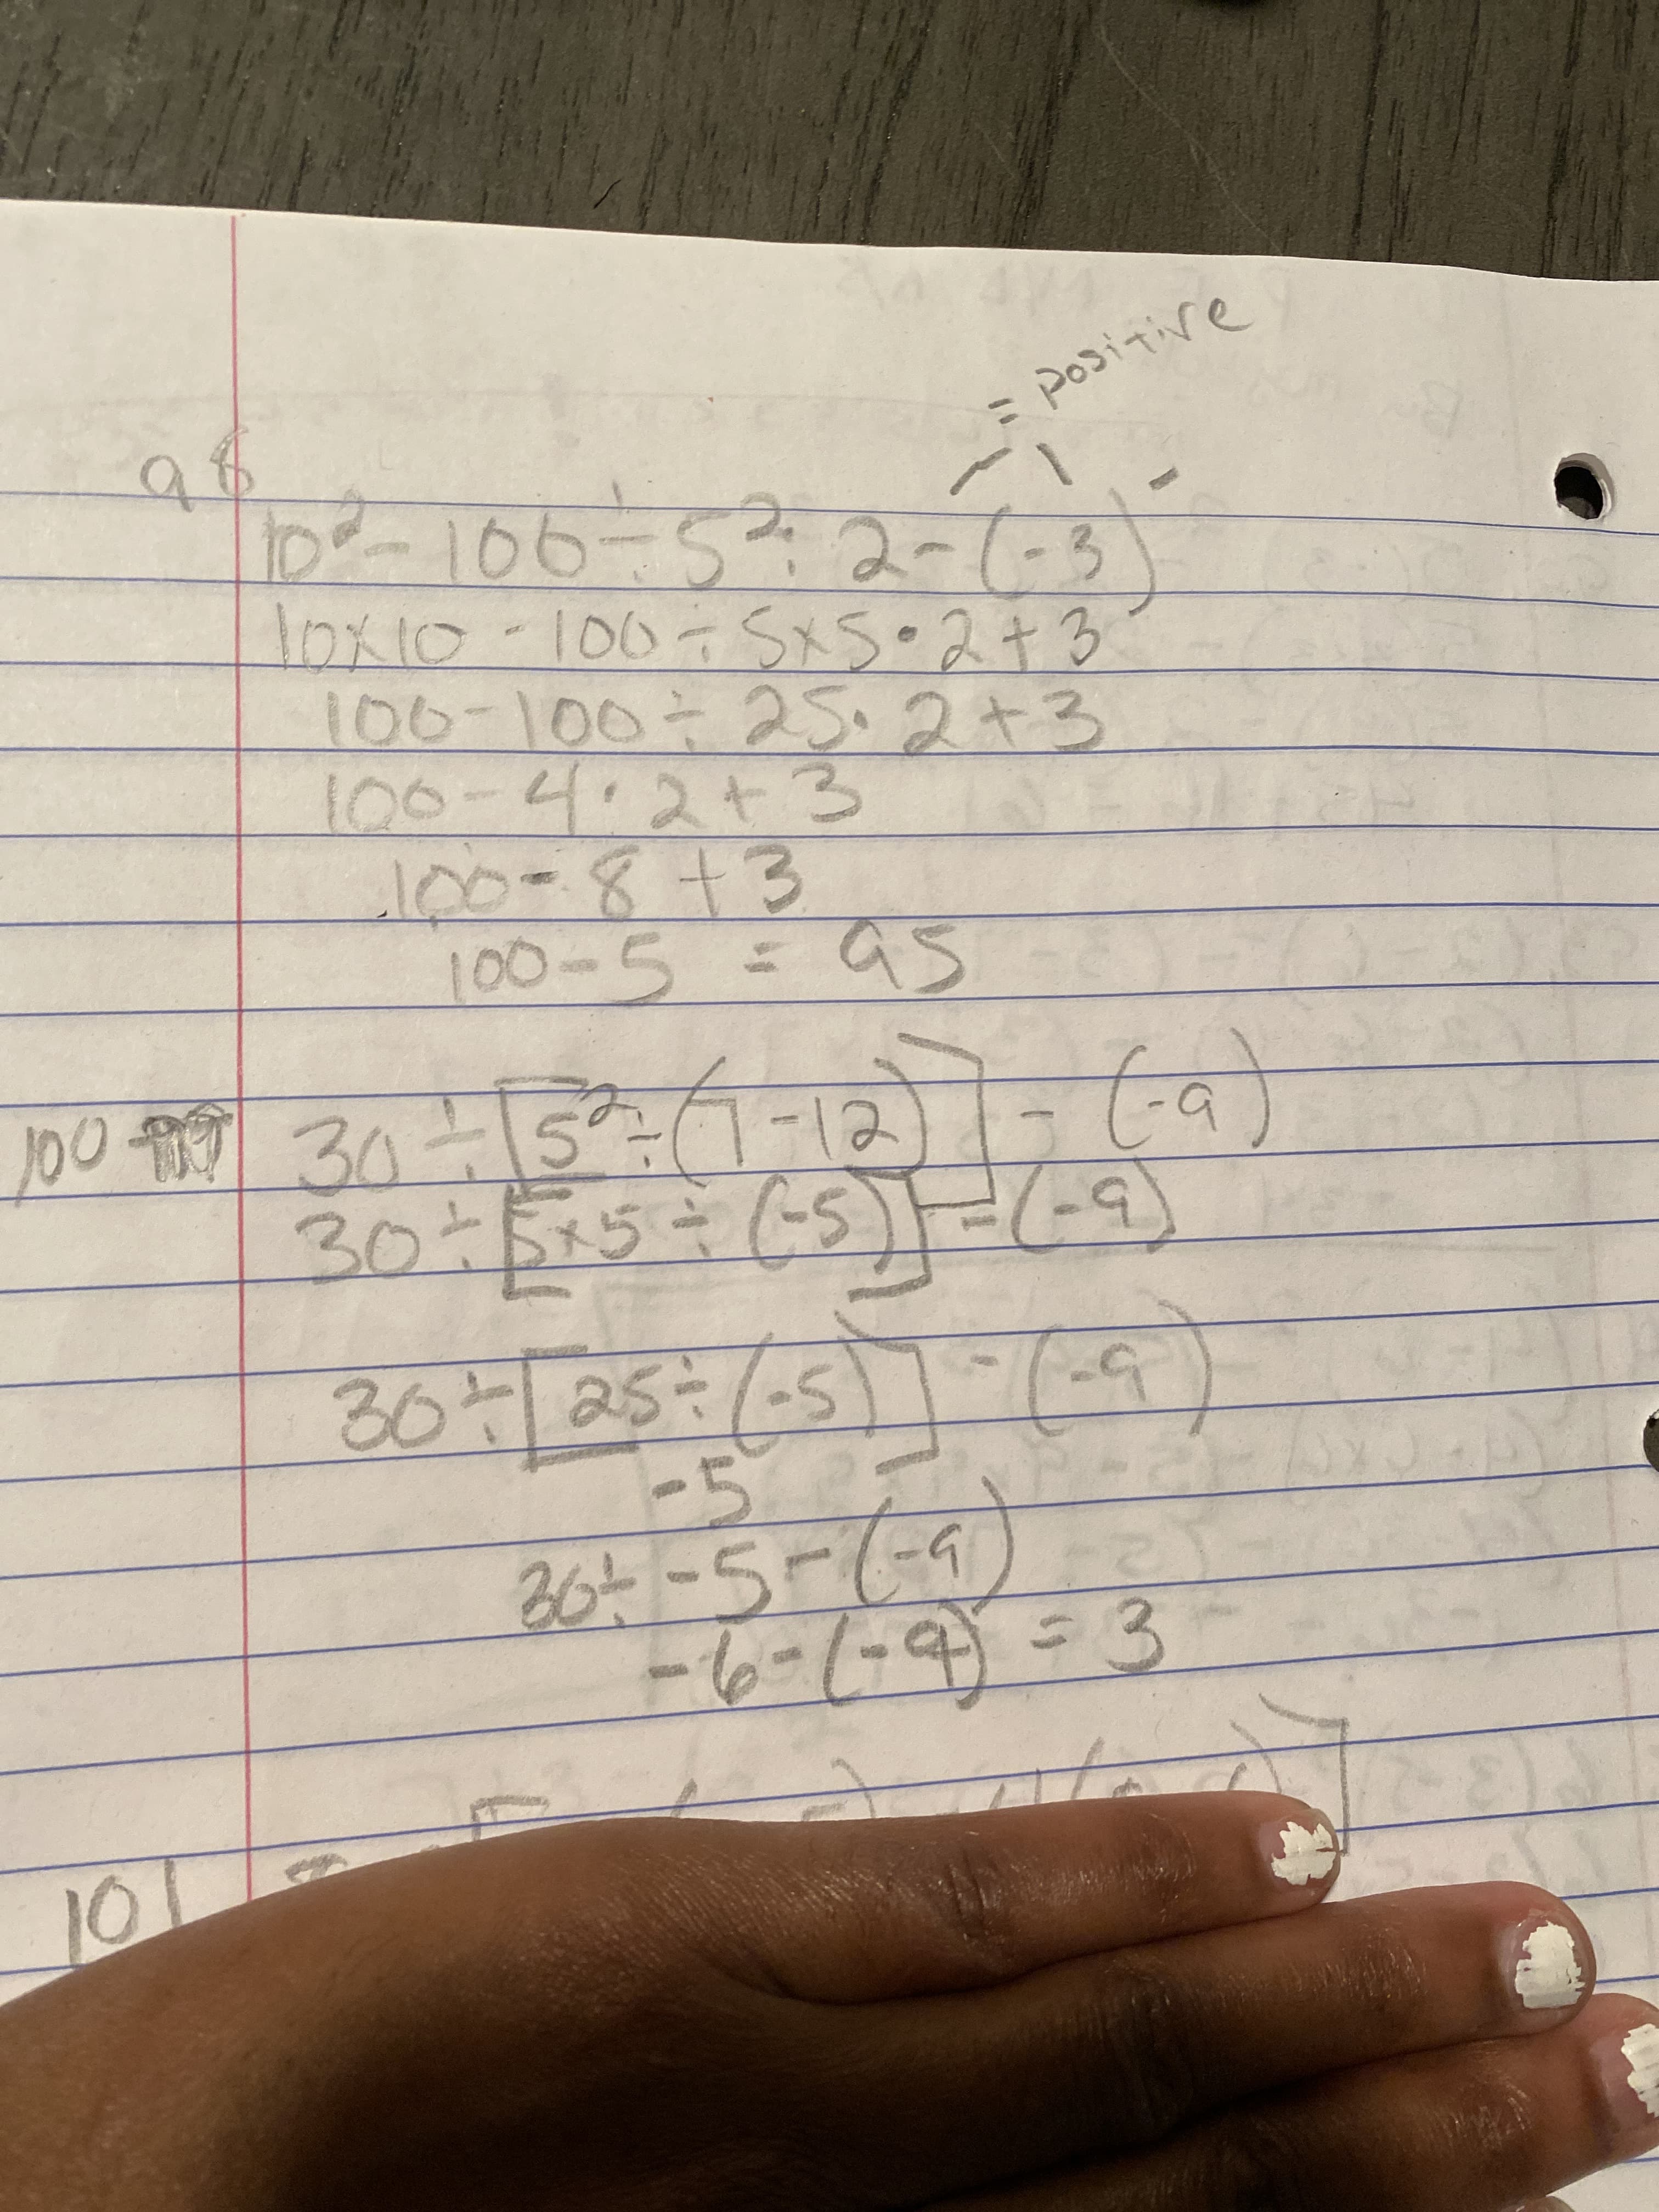 = positive
98
10² - 100 ÷ 5² · 2 - (-3)
10x10 - 100 ÷ 5x5 • 2 + 3
100 - 100 ÷ 25 · 2 + 3
100 - 4 · 2 + 3
100 - 8 + 3
100 - 5 = 95
100 30 ÷ [5² ÷ (7 - 12)] - (-9)
30 ÷ [5x5 ÷ (-5)] - (-9)
30 ÷ [25 ÷ (-5)] - (-9)
-5
30 ÷ -5 - (-9)
-6 - (-9) = 3
101